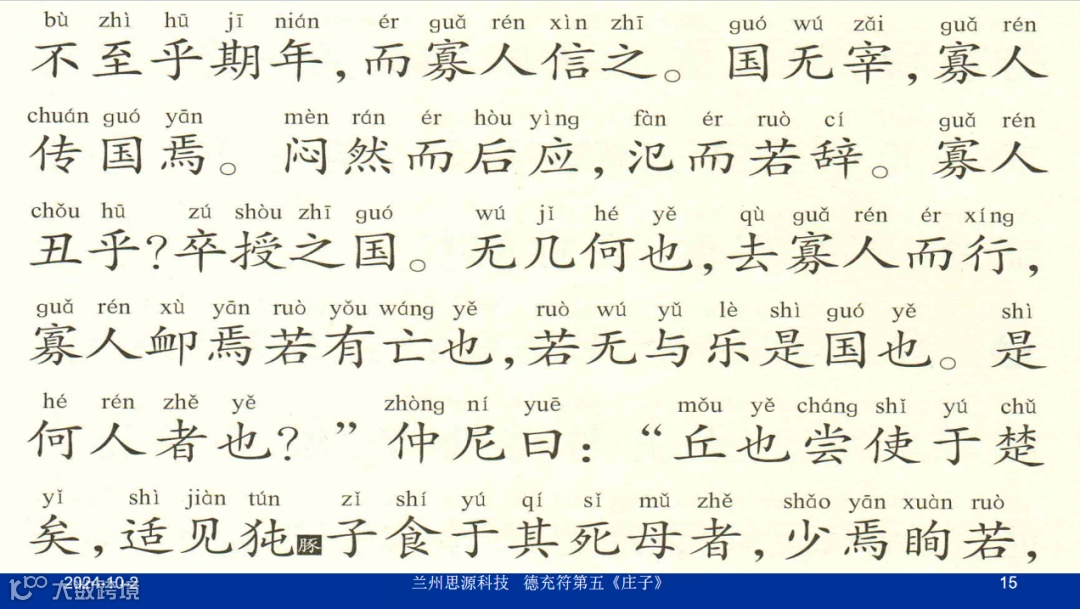 bù zhì hū jī nián ér guǎ rén xìn zhī guó wú zǎi guǎ rén
不至乎期年，而寡人信之。国无宰，寡人
chuán guó yān mèn rán ér hòu yìng fàn ér ruò cí guǎ rén
传国焉。闷然而后应，氾而若辞。寡人
chǒu hū zú shòu zhī guó wú jǐ hé yě qù guǎ rén ér xíng
丑乎？卒授之国。无几何也，去寡人而行，
guǎ rén xù yān ruò yǒu wáng yě ruò wú yǔ lè shì guó yě shì
寡人卹焉若有亡也，若无与乐是国也。是
hé rén zhě yě zhòng ní yuē mǒu yě cháng shǐ yú chǔ
何人者也？”仲尼曰：“丘也尝使于楚
yǐ shì jiàn tún zǐ shí yú qí sǐ mǔ zhě shǎo yān xuàn ruò
矣，适见㹠豚子食于其死母者，少焉眴若，
2024-10-2 兰州思源科技 德充符第五《庄子》 15
大数跨境